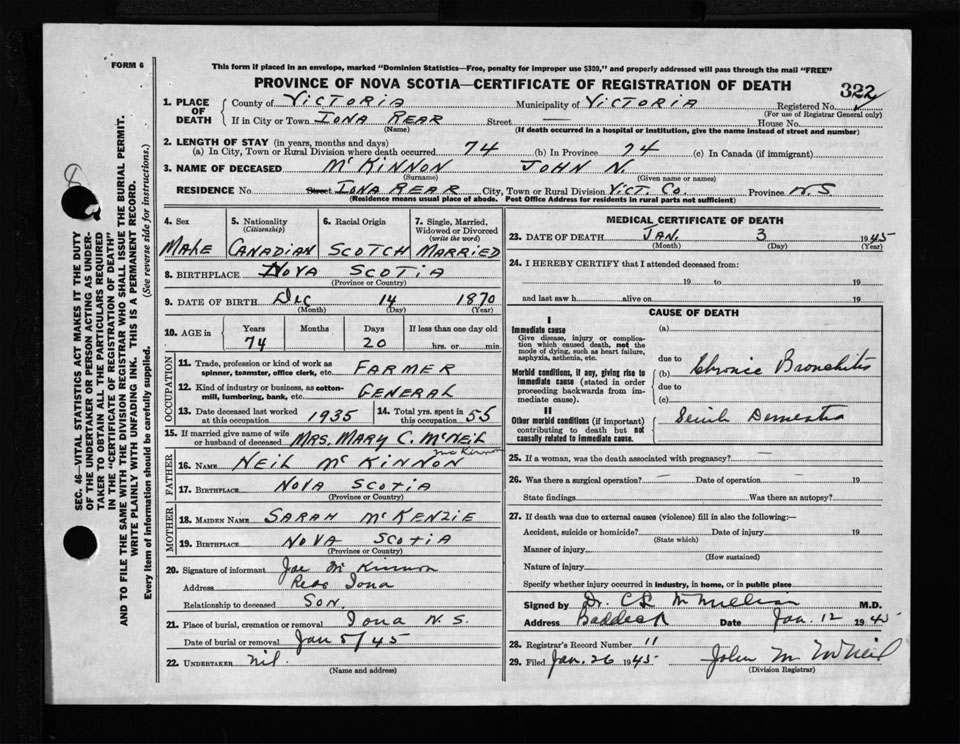 FORM 6
This form if placed in an envelope, marked "Dominion Statistics—Free, penalty for improper use $300," and properly addressed will pass through the mail "FREE"
PROVINCE OF NOVA SCOTIA—CERTIFICATE OF REGISTRATION OF DEATH
322
1. PLACE OF DEATH { County of VICTORIA Municipality of VICTORIA Registered No.
(For use of Registrar General only)
If in City or Town IONA REAR Street — House No.
(Name) (If death occurred in a hospital or institution, give the name instead of street and number)
2. LENGTH OF STAY (in years, months and days)
(a) In City, Town or Rural Division where death occurred 74 (b) In Province 74 (c) In Canada (if immigrant)
3. NAME OF DECEASED McKINNON JOHN N.
(Surname) (Given name or names)
RESIDENCE No. Street IONA REAR City, Town or Rural Division VICT. CO. Province N.S
(Residence means usual place of abode. Post Office Address for residents in rural parts not sufficient)
4. Sex 5. Nationality (Citizenship) 6. Racial Origin 7. Single, Married, Widowed or Divorced (write the word)
MALE CANADIAN SCOTCH MARRIED
8. BIRTHPLACE NOVA SCOTIA
(Province or Country)
9. DATE OF BIRTH DEC 14 1870
(Month) (Day) (Year)
10. AGE in { Years Months Days If less than one day old
74 20 hrs. or min.
OCCUPATION
11. Trade, profession or kind of work as spinner, teamster, office clerk, etc. FARMER
12. Kind of industry or business, as cotton-mill, lumbering, bank, etc. GENERAL
13. Date deceased last worked at this occupation 1935 14. Total yrs. spent in this occupation 55
15. If married give name of wife or husband of deceased MRS. MARY C. McNEIL
McKinnon
FATHER
16. NAME NEIL McKINNON
17. BIRTHPLACE NOVA SCOTIA
(Province or Country)
MOTHER
18. MAIDEN NAME SARAH McKENZIE
19. BIRTHPLACE NOVA SCOTIA
(Province or Country)
20. Signature of informant Joe McKinnon
Address Rear Iona
Relationship to deceased SON.
21. Place of burial, cremation or removal Iona N.S.
Date of burial or removal Jan 5/45
22. UNDERTAKER nil.
(Name and address)
MEDICAL CERTIFICATE OF DEATH
23. DATE OF DEATH JAN. 3 1945
(Month) (Day) (Year)
24. I HEREBY CERTIFY that I attended deceased from:
19 to 19
and last saw h alive on 19
CAUSE OF DEATH
I
Immediate cause
Give disease, injury or complication which caused death, not the mode of dying, such as heart failure, asphyxia, asthenia, etc.
(a)
due to
Morbid conditions, if any, giving rise to immediate cause (stated in order proceeding backwards from immediate cause).
(b) Chronic Bronchitis
due to
(c)
II
Other morbid conditions (if important) contributing to death but not causally related to immediate cause.
Senile Dementia
25. If a woman, was the death associated with pregnancy? —
26. Was there a surgical operation? — Date of operation 19
State findings Was there an autopsy?
27. If death was due to external causes (violence) fill in also the following:—
Accident, suicide or homicide? Date of injury 19
(State which)
Manner of injury
(How sustained)
Nature of injury
Specify whether injury occurred in industry, in home, or in public place
Signed by Dr. C L McMillan M.D.
Address Baddeck Date Jan. 12 1945
28. Registrar's Record Number 11
29. Filed Jan. 26 1945 John M McNeil
(Division Registrar)
SEC. 46—VITAL STATISTICS ACT MAKES IT THE DUTY
OF THE UNDERTAKER OR PERSON ACTING AS UNDER-
TAKER TO OBTAIN ALL THE PARTICULARS REQUIRED
IN THE "CERTIFICATE OF REGISTRATION OF DEATH"
AND TO FILE THE SAME WITH THE DIVISION REGISTRAR WHO SHALL ISSUE THE BURIAL PERMIT.
WRITE PLAINLY WITH UNFADING INK. THIS IS A PERMANENT RECORD.
Every item of information should be carefully supplied. (See reverse side for instructions.)